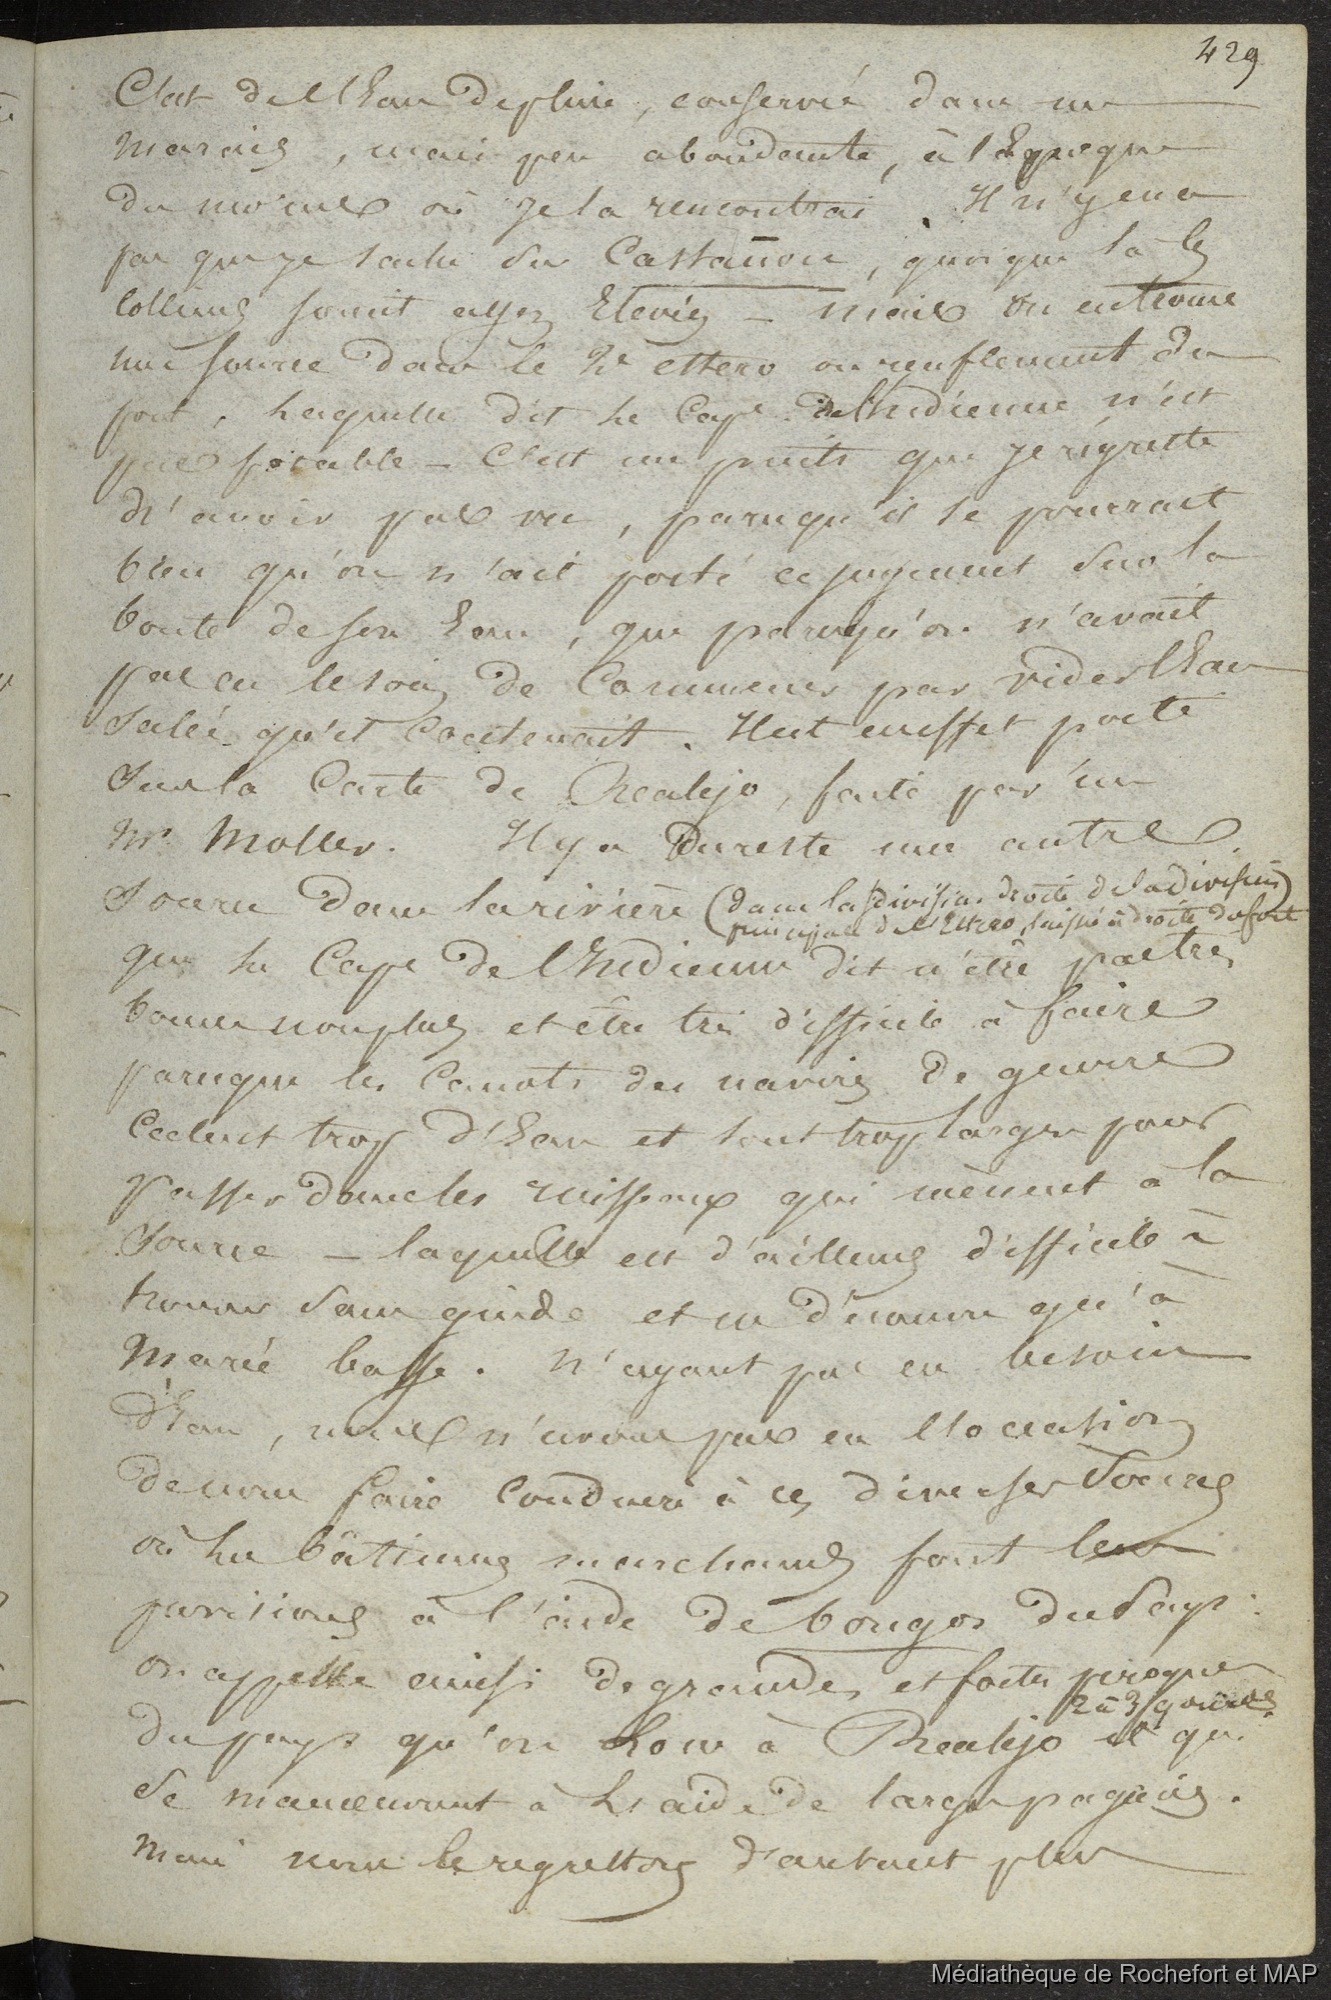 429
C'est de l'Eau de pluie, conservée dans un
marais, mais peu abondante, à l'Epoque
du moins où je la rencontrai. Il n'y en a
pas que je sache sur Castañon, quoique là les
collines soient assez Elevées — mais on en trouve
une source dans le 2e estero ou renflement du
port, laquelle dit le Cape. de l'Indienne n'est
pas potable — C'est un puits que je régrette
d'avoir pas vu, parcequ'il se pourrait
bien qu'on n'ait porté ce jugement sur la
bonté de son Eau, que parcequ'on n'avait
pas eu le soin de Commencer par vider l'Eau
salée qu'il Contenait. Il est en effet porté
sur la Carte de Realejo, faite par un
Mr Moller. Il y a du reste une autre
source dans la rivière (dans la division droite de la division
principale de l'Estero, laissée à droite du fort)
que le Cape de l'Indienne dit n'être pas très
bonne non plus et être très difficile à faire
parceque les Canots des navires de guerre
calent trop d'Eau et sont trop larges pour
passer dans les ruisseaux qui mènent à la
source — laquelle est d'ailleurs difficile à
trouver sans guide et ne découvre qu'à
Marée basse. N'ayant pas eu besoin
d'Eau, nous n'avons pas eu l'ocasion
de nous faire Conduire à ces diverses Sources
où les bâtimens marchands font leur
provisions à l'aide de bongos du Pays.
on appelle ainsi de grandes et fortes pirogues
du pays qu'on loue à Realejo 2 à 3 gourdes et qui
se manoeuvrent à l'aide de larges pagaies.
Mais nous le regrettons d'autant plus
Médiathèque de Rochefort et MAP